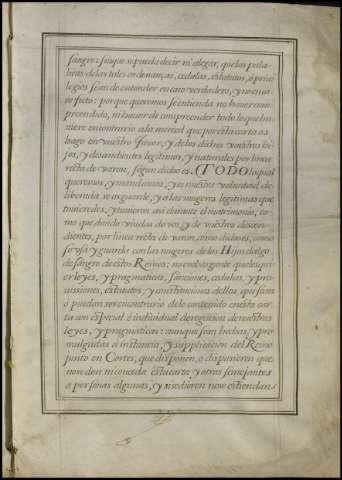 sangre: sin que se pueda decir ni alegar, que las pala
bras de las tales ordenanças, cedulas, estatutos, ò privi
legios se an de entender en caso verdadero, y no en ca
so ficto: porque queremos se entienda no haver com
prendido, ni haver de comprender todo lo que hu
viere en contrario à la merced que por esta carta os
hago en vuestro favor, y de los dichos vuestros hi
jos, y descendientes legitimos, y naturales por linea
recta de varon, segun dicho es. TODO lo qual
queremos, y mandamos, y es nuestra voluntad de
liberada se os guarde, y a las mugeres legitimas que
tuvieredes, y tuvieren asi durante el matrimonio, co
mo quando viudas de vos y de vuestros descen
dientes, por linea recta de varon, como dicho es, como
se usa y guarda con las mugeres de los Hijos dalgo
de sangre de estos Reinos: no embargante qualesqui
er leyes, y pragmaticas, sanciones, cedulas, y pro
visiones, estatutos, y constituciones dellos, que sean
o puedan ser en contrario de lo contenido en esta car
ta con especial è individual derogacion de nuestras
leyes, y pragmaticas: aunque sean hechas, y pro
mulgadas à instancia, y supplicacion del Reino
junto en Cortes, que disponen, o dispusieren que
no se den ni conceda esta carta, y otras semejantes
a personas algunas, y si se dieren no se estiendan